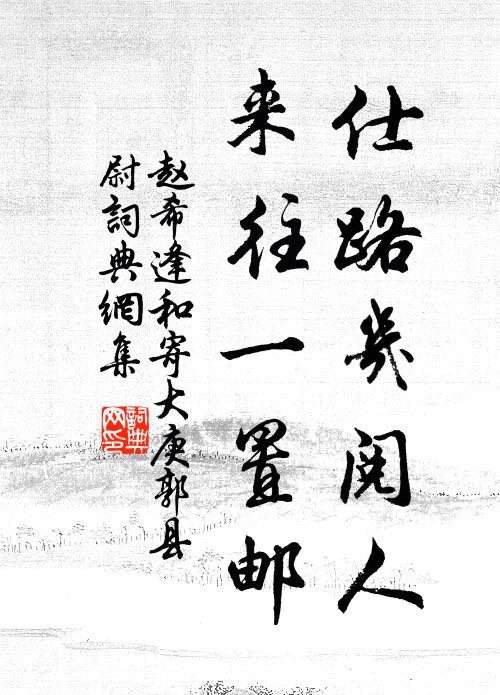 仕路幾阅人
来往一置邮
赵希逢和寄大庾郭县
尉詞典網集
詞典网印